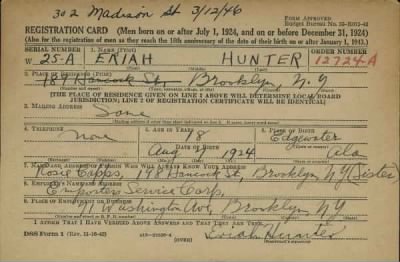 302 Madison St 3/12/46
FORM APPROVED
REGISTRATION CARD (Men born on or after July 1, 1924, and on or before December 31, 1924)
(Also for the registration of men as they reach the 18th anniversary of the date of their birth on or after January 1, 1943.)
SERIAL NUMBER 1. NAME (Print) ORDER NUMBER
W 25-A ERIAH HUNTER 12724-A
2. PLACE OF RESIDENCE (Print)
Hancock St. Brooklyn, N.Y
(THE PLACE OF RESIDENCE GIVEN ON LINE 2 ABOVE WILL DETERMINE LOCAL BOARD
JURISDICTION; LINE 2 OF REGISTRATION CERTIFICATE WILL BE IDENTICAL)
3. MAILING ADDRESS
Same
4. TELEPHONE 5. AGE IN YEARS 6. PLACE OF BIRTH
None 18 Edgewater
DATE OF BIRTH
Aug 1924 Ala
7. NAME AND ADDRESS OF PERSON WHO WILL ALWAYS KNOW YOUR ADDRESS
Rosie Capps, Hancock St, Brooklyn, NY (Sister)
8. EMPLOYER'S NAME AND ADDRESS
Service Corp.
9. PLACE OF EMPLOYMENT OR BUSINESS
Washington Ave, Brooklyn, NY
I AFFIRM THAT I HAVE VERIFIED ABOVE ANSWERS AND THAT THEY ARE TRUE.
DSS Form 1 (OVER) Eriah Hunter